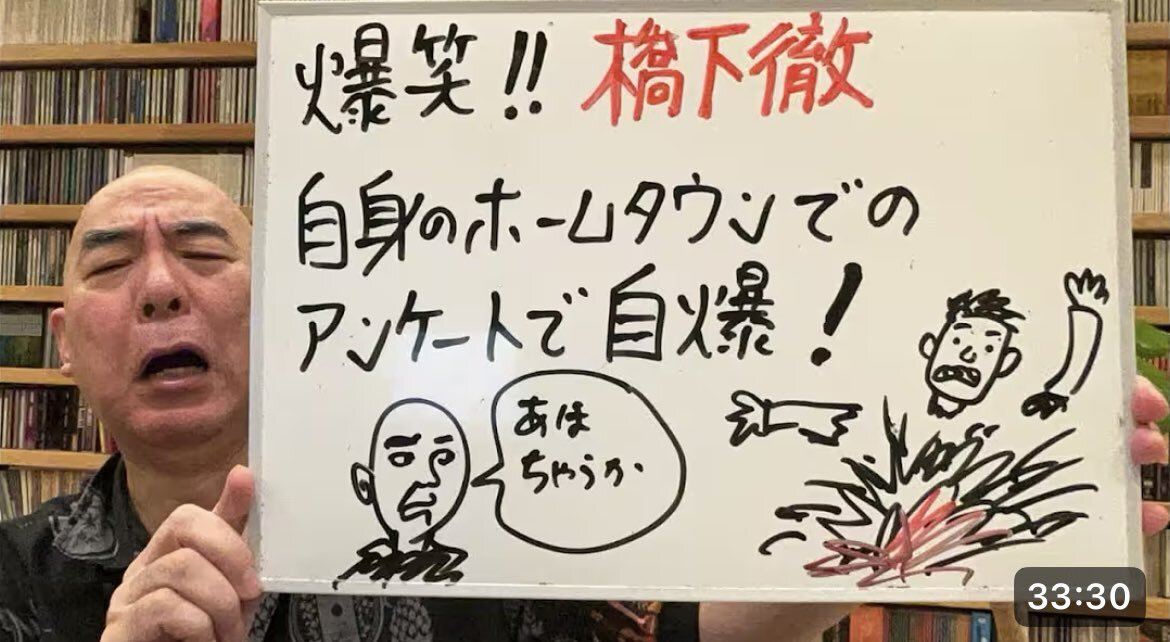 爆笑!! 橋下徹
自身のホームタウンでの
アンケートで自爆!
あほ
ちゃうか
33:30